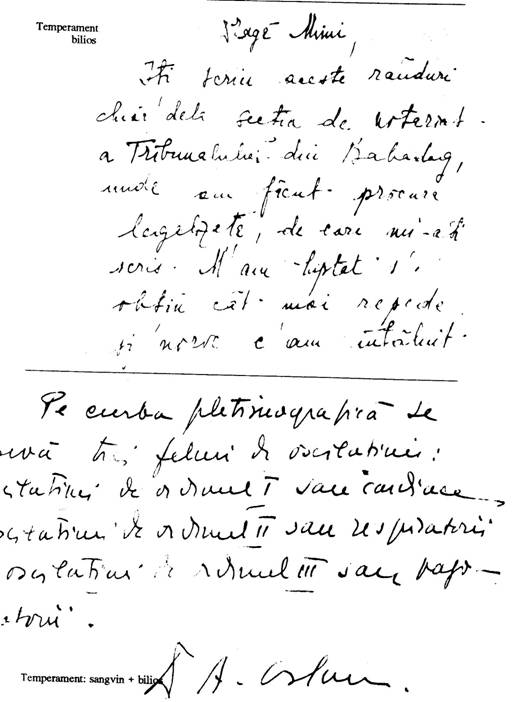 Temperament
bilios
Dragă Mimi,
Iți scriu aceste rânduri
chiar dela secția de notariat
a Tribunalului din Babadag,
unde am făcut procura
legalizată, de care mi-ați
scris. M'am luptat s'o
obțin cât mai repede
și noroc c'am întâlnit
Pe curba pletismografică se
trei feluri de oscilațiuni:
de ordinul I sau cardiace
de ordinul II sau respiratorii
oscilațiuni de ordinul III sau vaso-
Temperament: sangvin + bilios
A. Aslan.